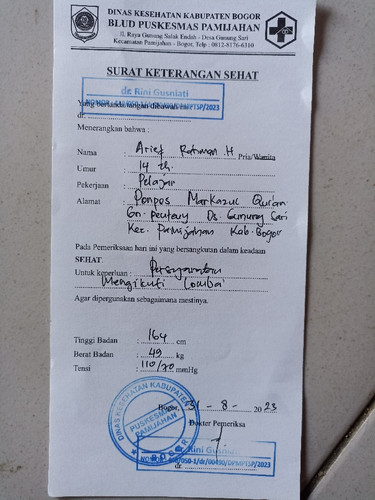 DINAS KESEHATAN KABUPATEN BOGOR
BLUD PUSKESMAS PAMIJAHAN
Jl. Raya Gunung Salak Endah - Desa Gunung Sari
Kecamatan Pamijahan - Bogor, Telp : 0812-8176-6310
SURAT KETERANGAN SEHAT
dr. Rini Gusniati
Yang bertanda tangan dibawah ini
dr.
Menerangkan bahwa :
Nama : Arief Rahman H Pria/Wanita
Umur : 14 th.
Pekerjaan : Pelajar
Alamat : Ponpes Markazul Qur'an
Ds. Gunung Sari
Kec. Pamijahan Kab. Bogor
Pada Pemeriksaan hari ini yang bersangkutan dalam keadaan
SEHAT.
Untuk keperluan : Persyaratan
Mengikuti Lomba
Agar dipergunakan sebagaimana mestinya.
Tinggi Badan : 164 cm
Berat Badan : 49 kg
Tensi : 110/70 mmHg
DINAS KESEHATAN KABUPATEN
PUSKESMAS
PAMIJAHAN
BOGOR
Bogor, 31 - 8 - 2023
Dokter Pemeriksa
dr. Rini Gusniati
dr.